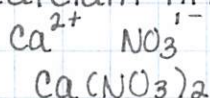 Ca²⁺ NO₃¹⁻
Ca(NO₃)₂